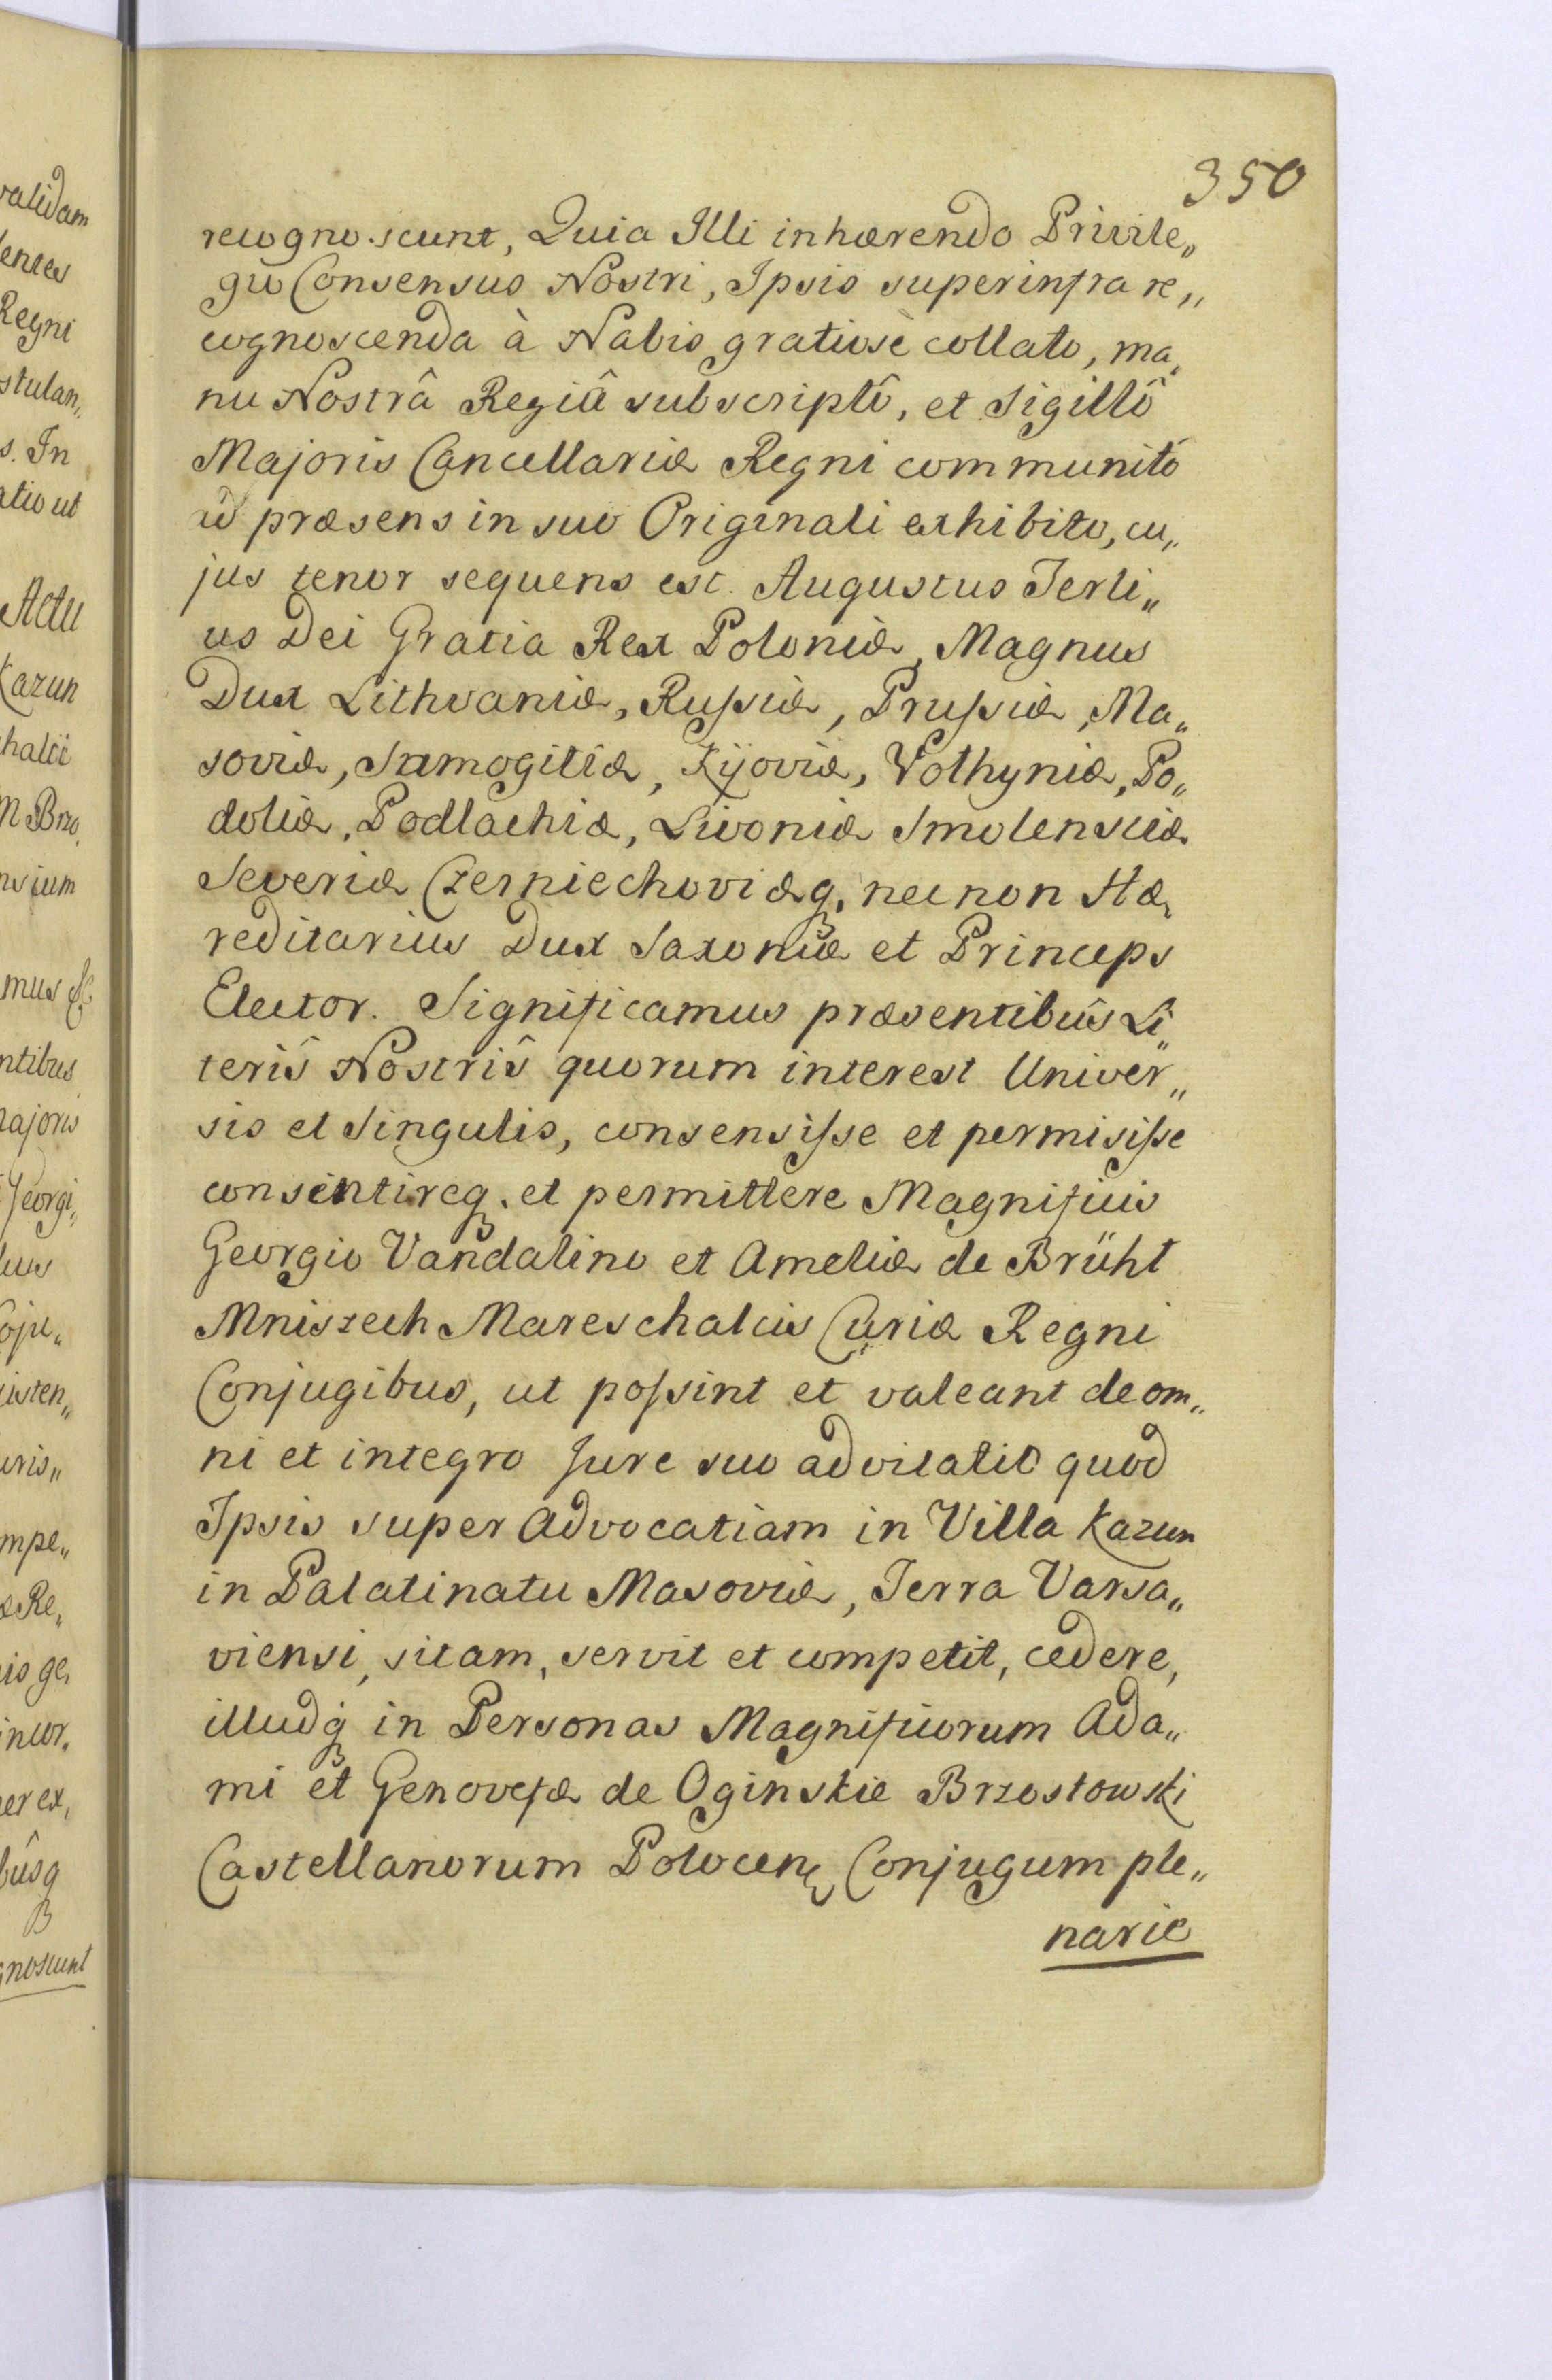 350
recognoscunt, Quia Illi inhærendo Privile„
gio Consensus Nostri, Ipsis super infra re„
cognoscenda à Nobis gratiosè collato, ma„
nu Nostrâ Regiâ subscriptô, et Sigillô
Majoris Cancellariæ Regni communitô
ad præsens in suo Originali exhibito, cu„
jus tenor sequens est. Augustus Terti„
us Dei Gratia Rex Poloniæ, Magnus
Dux Lithvaniæ, Russiæ, Prussiæ, Ma„
soviæ, Samogitiæ, Kijoviæ, Volhyniæ, Po„
doliæ, Podlachiæ, Livoniæ Smolensciæ
Severiæ Czerniechoviæq. necnon Hæ„
reditarius Dux Saxoniæ et Princeps
Elector. Significamus præsentibûs Li„
terîs Nostrîs quorum interest Univer„
sis et Singulis, consensisse et permisisse
consentireq. et permittere Magnificis
Georgio Vandalino et Ameliæ de Brühl
Mniszech Mareschalcis Curiæ Regni
Conjugibus, ut possint et valeant de om„
ni et integro Jure suo advitalit quod
Ipsis super Advocatiam in Villa Kazun
in Palatinatu Masoviæ, Terra Varsa„
viensi, sitam, servit et competit, cedere,
illudq in Personas Magnificorum Ada„
mi et Genovefæ de Oginskie Brzostowski
Castellanorum Polocen Conjugum ple„
narie
validam
Regni
stulan„
s. In
atio ut
Actu
Kazun
M Brzo„
nsium
mus
ntibus
Majoris
Georgi„
isten„
uris„
mpe„
æ Re„
is ge„
incor„
er ex„
bûsq
gnoscunt